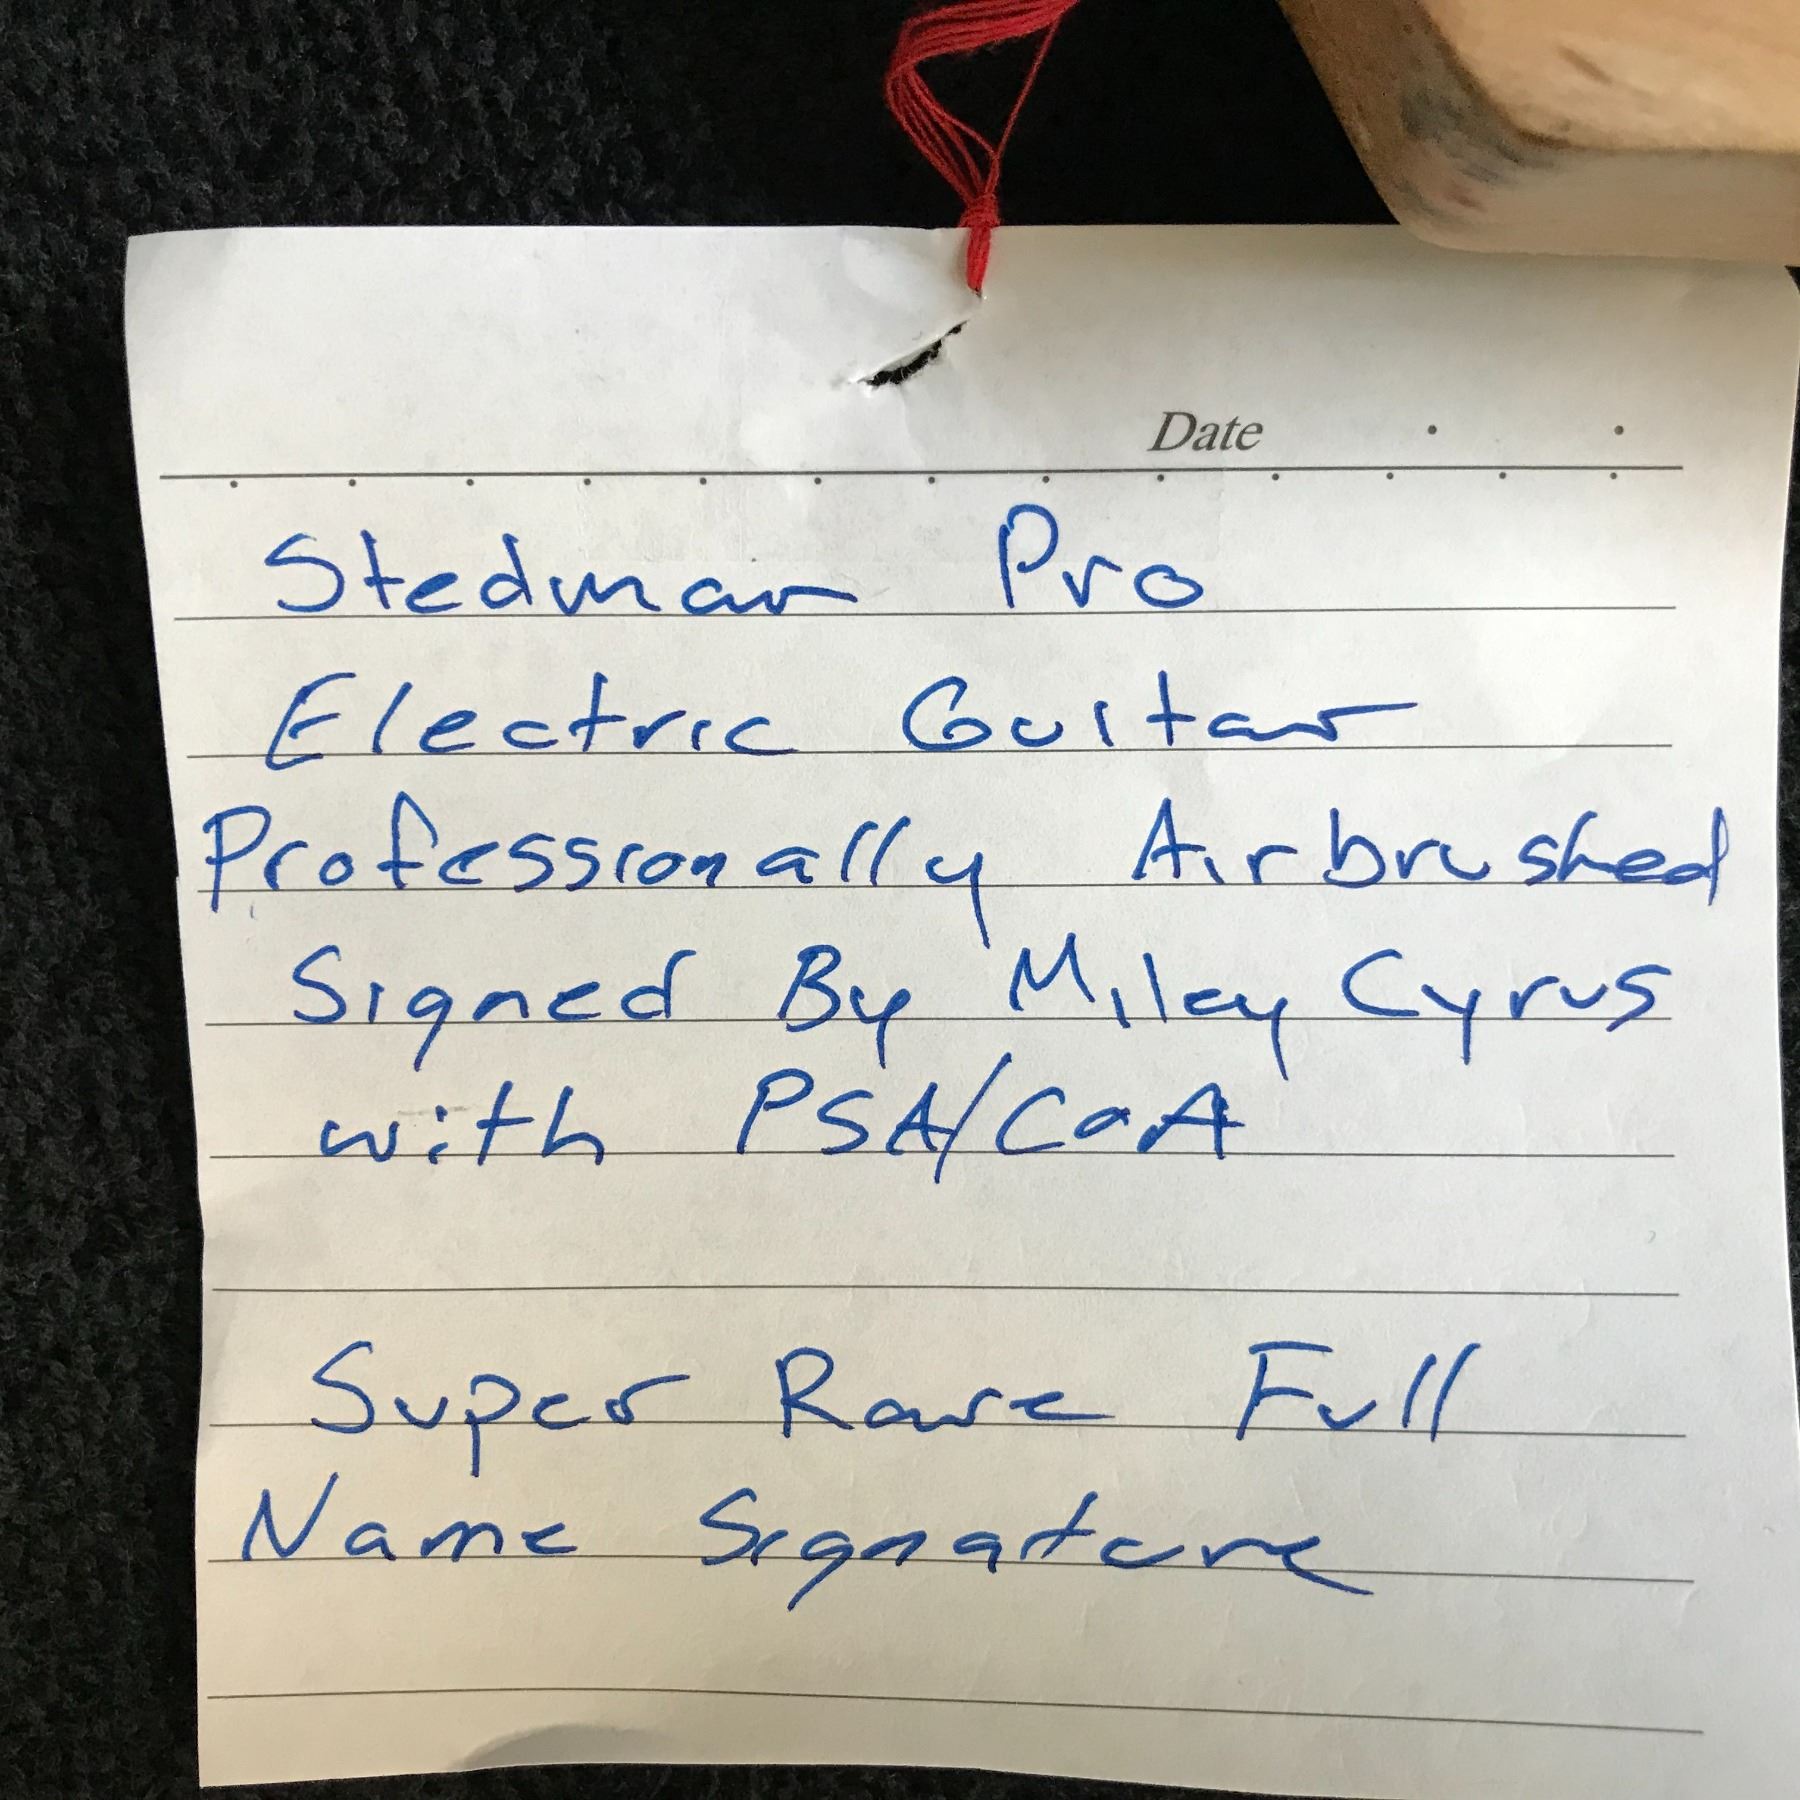 Date
Stedman Pro
Electric Guitar
Professionally Airbrushed
Signed By Miley Cyrus
with PSA/CoA
Super Rare Full
Name Signature